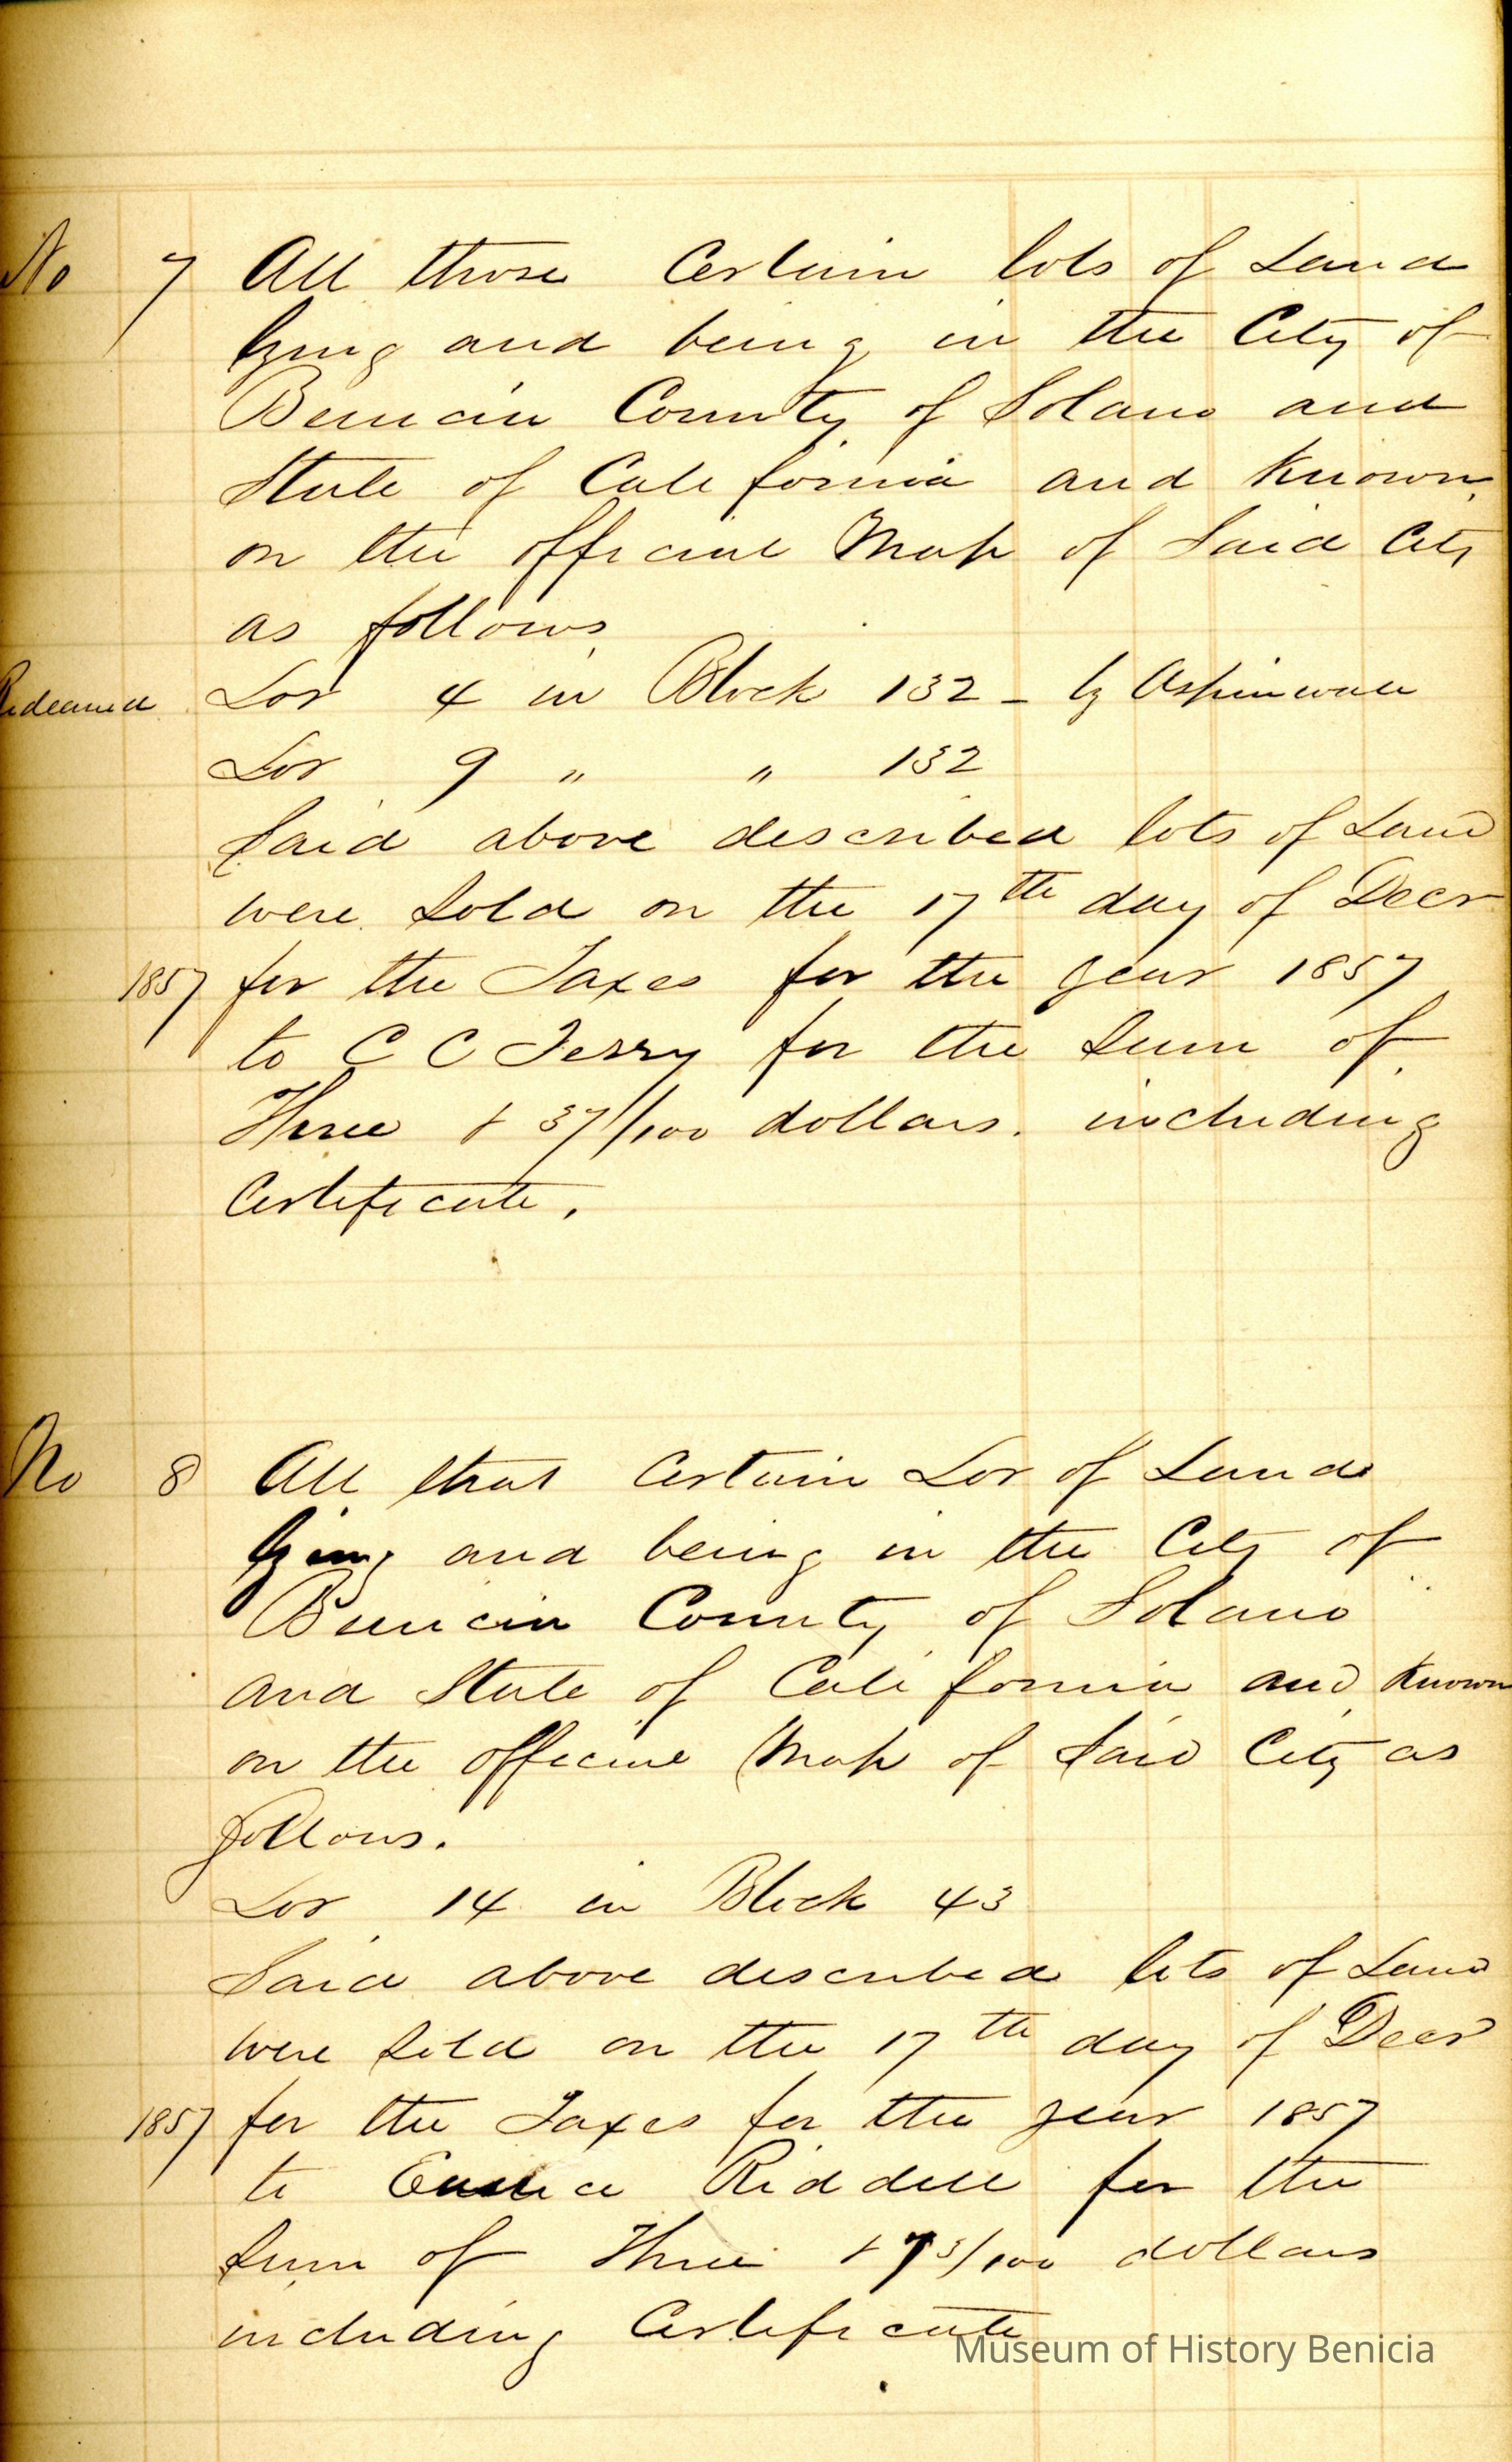 No 7 All those Certain lots of Land
lying and being in the City of
Benicia County of Solano and
State of California and Known
on the official Map of Said City
as follows
Redeamed Lot 4 in Block 132 - by Aspinwall
Lot 9 " " 132
Said above described lots of Land
were Sold on the 17th day of Decr
1857 for the Taxes for the year 1857
to C C Terry for the Sum of
Three + 37/100 dollars. including
Certificate.
No 8 All that Certain Lot of Land
lying and being in the City of
Benicia County of Solano
and State of California and Known
on the official Map of Said City as
follows.
Lot 14 in Block 43
Said above described lots of Land
were Sold on the 17th day of Decr
1857 for the Taxes for the year 1857
to Riddell for the
Sum of Three + 73/100 dollars
including Certificate
Museum of History Benicia